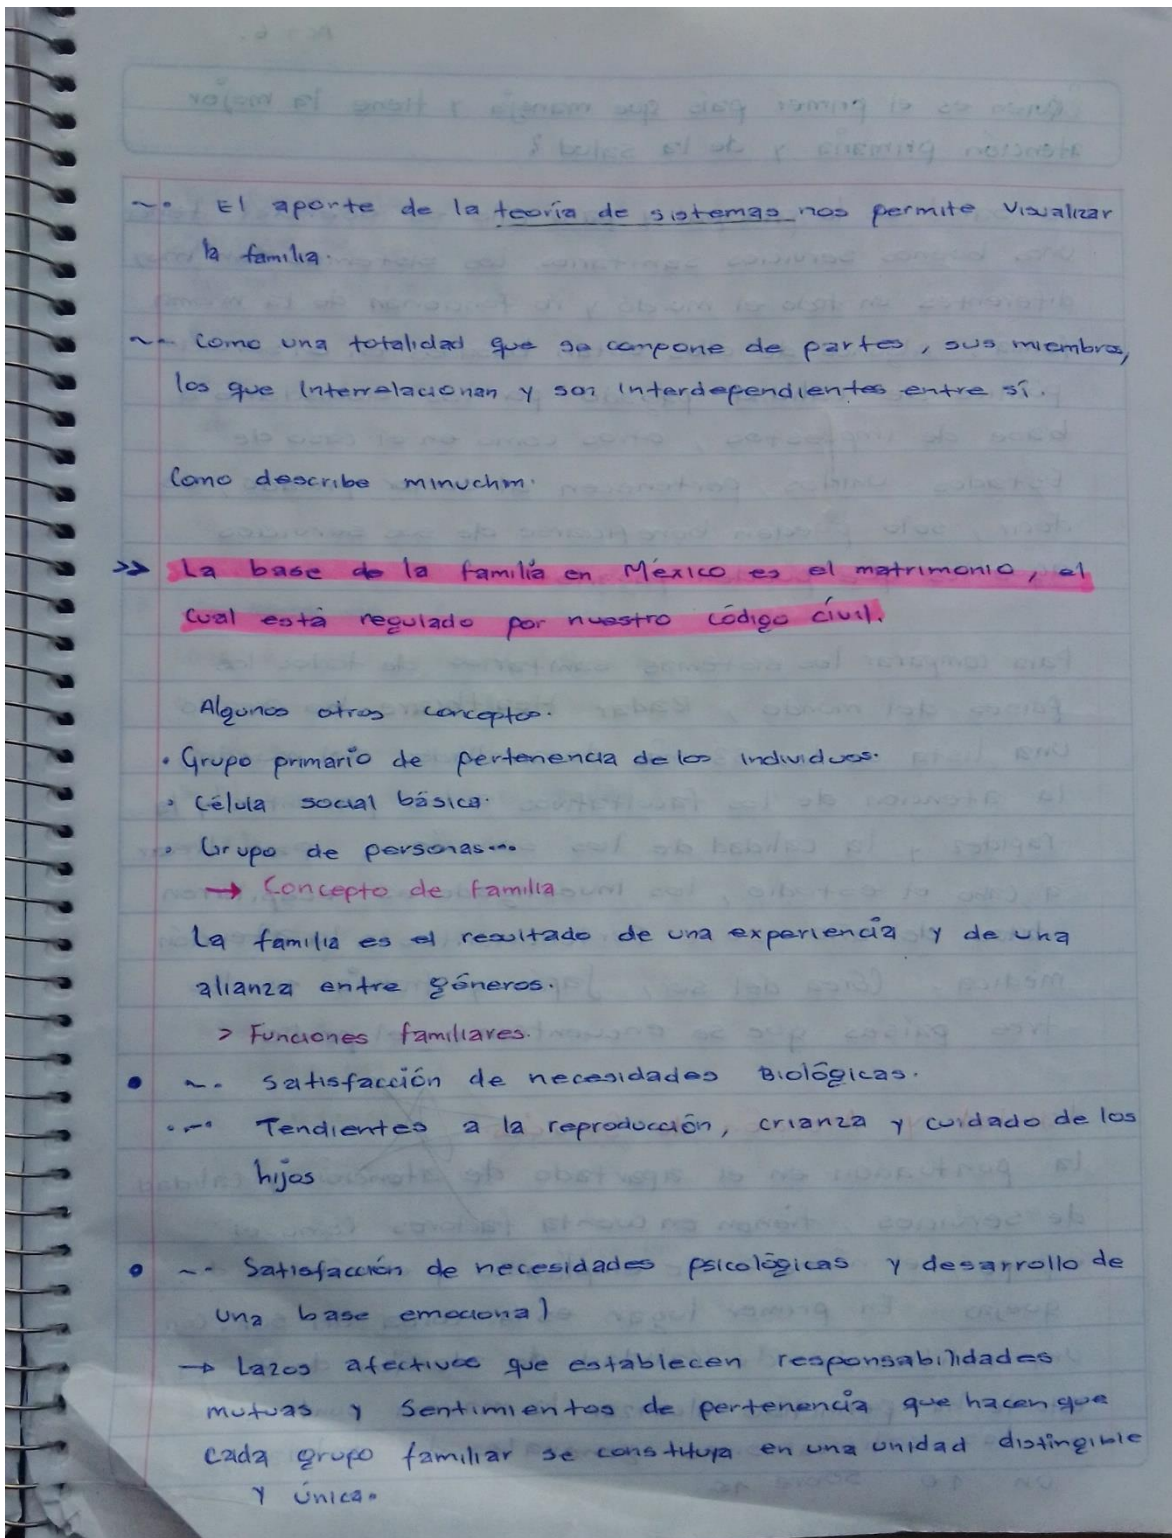 ~• El aporte de la teoría de sistemas nos permite visualizar
la familia.
~- Como una totalidad que se compone de partes, sus miembros,
los que Interrelacionan y son Interdependientes entre sí.
Como describe minuchm.
>> La base de la familia en México es el matrimonio, el
cual está regulado por nuestro código civil.
Algunos otros conceptos.
• Grupo primario de pertenencia de los individuos.
• Célula social básica.
• Grupo de personas...
→ Concepto de familia
La familia es el resultado de una experiencia y de una
alianza entre géneros.
> Funciones familiares.
• ~- Satisfacción de necesidades Biológicas.
•-• Tendientes a la reproducción, crianza y cuidado de los
hijos
• ~- Satisfacción de necesidades psicológicas y desarrollo de
una base emocional
→ Lazos afectivos que establecen responsabilidades
mutuas y Sentimientos de pertenencia que hacen que
cada grupo familiar se constituya en una unidad distingible
y única.